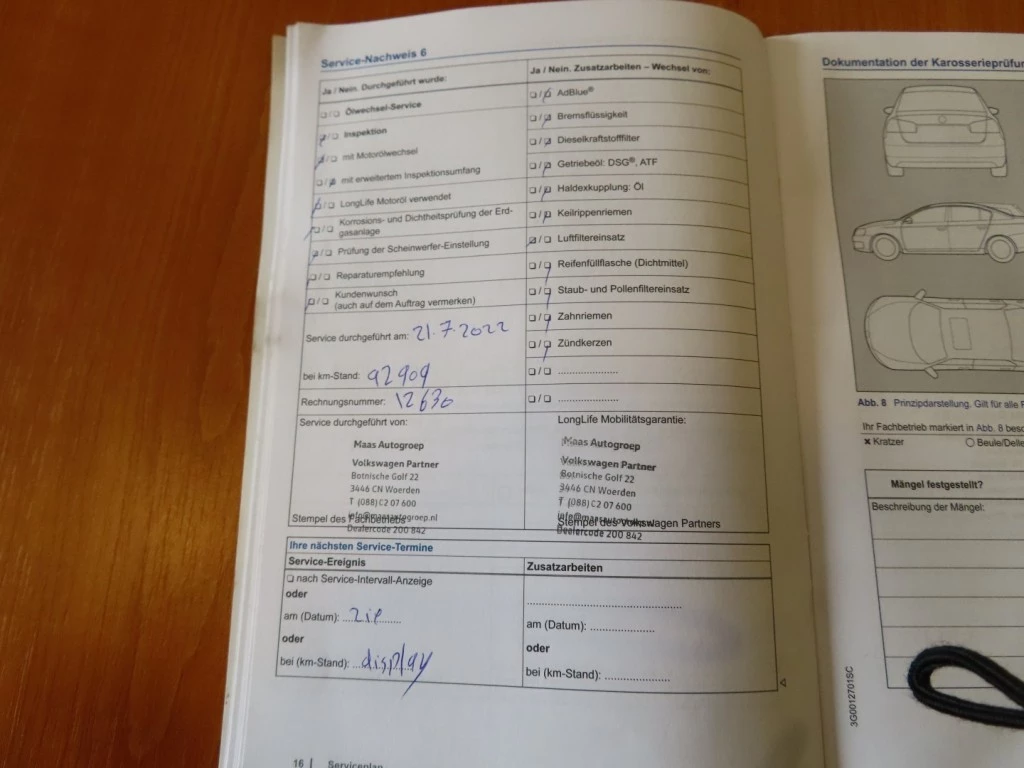 Service-Nachweis 6
Ja / Nein. Durchgeführt wurde:
❏/❏ Ölwechsel-Service
❏/❏ Inspektion
❏/❏ mit Motorölwechsel
❏/❏ mit erweitertem Inspektionsumfang
❏/❏ LongLife Motoröl verwendet
❏/❏ Korrosions- und Dichtheitsprüfung der Erd-
gasanlage
❏/❏ Prüfung der Scheinwerfer-Einstellung
❏/❏ Reparaturempfehlung
❏/❏ Kundenwunsch
(auch auf dem Auftrag vermerken)
Service durchgeführt am: 21.7.2022
bei km-Stand: 92909
Rechnungsnummer: 12630
Service durchgeführt von:
Maas Autogroep
Volkswagen Partner
Botnische Golf 22
3446 CN Woerden
T (088) C2 07 600
info@maasautogroep.nl
Stempel des Fachbetriebs
Dealercode 200 842
Ja / Nein. Zusatzarbeiten – Wechsel von:
❏/❏ AdBlue®
❏/❏ Bremsflüssigkeit
❏/❏ Dieselkraftstofffilter
❏/❏ Getriebeöl: DSG®, ATF
❏/❏ Haldexkupplung: Öl
❏/❏ Keilrippenriemen
❏/❏ Luftfiltereinsatz
❏/❏ Reifenfüllflasche (Dichtmittel)
❏/❏ Staub- und Pollenfiltereinsatz
❏/❏ Zahnriemen
❏/❏ Zündkerzen
❏/❏ .....................
❏/❏ .....................
LongLife Mobilitätsgarantie:
Maas Autogroep
Volkswagen Partner
Botnische Golf 22
3446 CN Woerden
T (088) C2 07 600
Stempel des Volkswagen Partners
Dealercode 200 842
Ihre nächsten Service-Termine
Service-Ereignis
❏ nach Service-Intervall-Anzeige
oder
am (Datum): ... zie ........
oder
bei (km-Stand): ... display
Zusatzarbeiten
.....................................................
am (Datum): ......................
oder
bei (km-Stand): ......................
16 | Serviceplan
Dokumentation der Karosserieprüfun
Abb. 8 Prinzipdarstellung. Gilt für alle F
Ihr Fachbetrieb markiert in Abb. 8 besc
× Kratzer ○ Beule/Delle
Mängel festgestellt?
Beschreibung der Mängel:
3G0012701SC